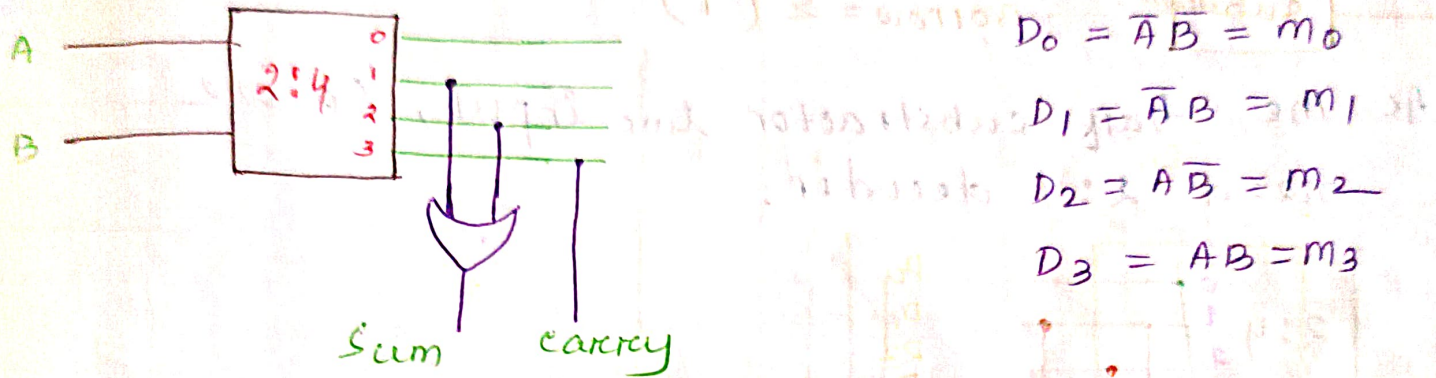 A
B
2:4
0
1
2
3
Sum
carry
D₀ = A̅ B̅ = m₀
D₁ = A̅ B = m₁
D₂ = A B̅ = m₂
D₃ = AB = m₃